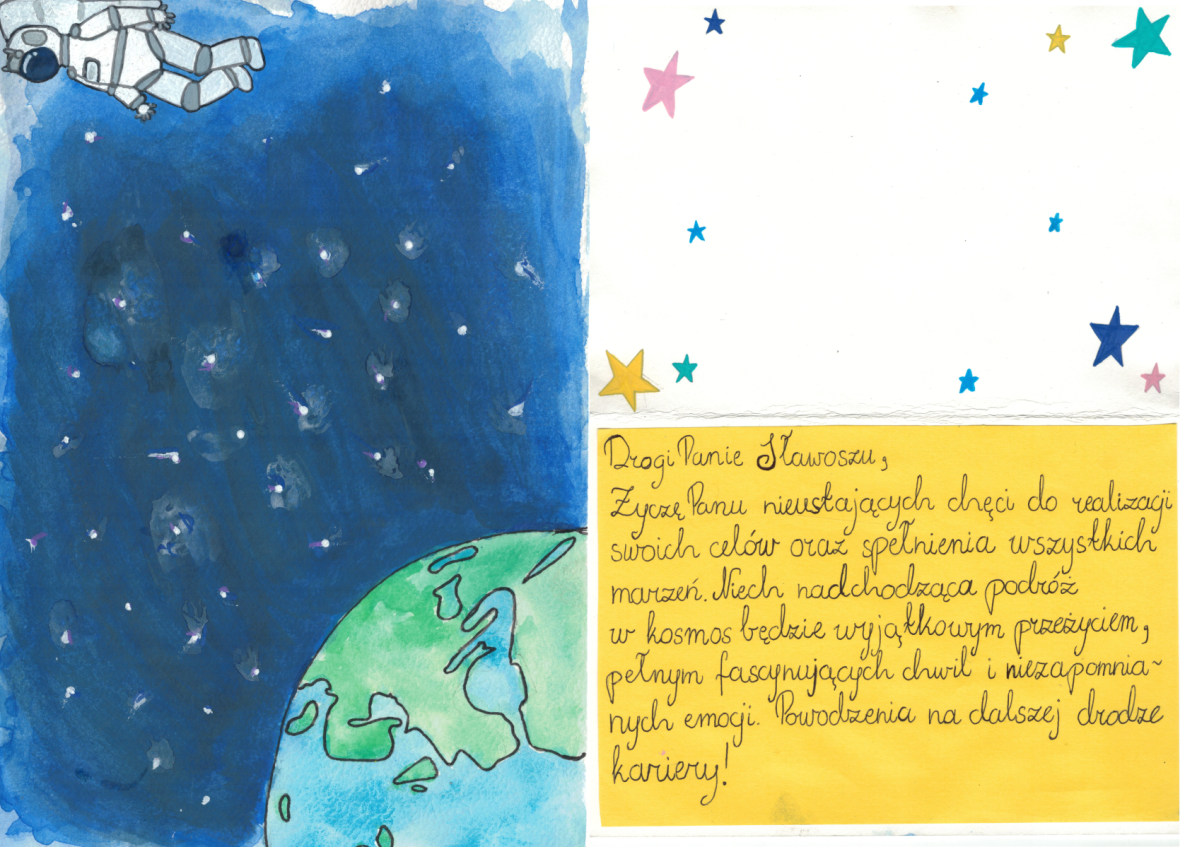 Drogi Panie Sławoszu,
Życzę Panu nieustających chęci do realizacji
swoich celów oraz spełnienia wszystkich
marzeń. Niech nadchodząca podróż
w kosmos będzie wyjątkowym przeżyciem,
pełnym fascynujących chwil i niezapomnia~
nych emocji. Powodzenia na dalszej drodze
kariery!